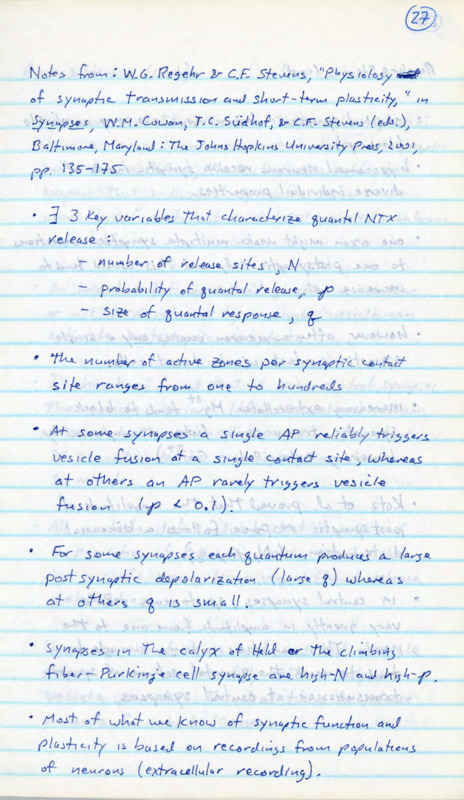 27
Notes from: W.G. Regehr & C.F. Stevens, "Physiology
of synaptic transmission and short-term plasticity," in
Synapses, W.M. Cowan, T.C. Südhof, & C.F. Stevens (eds.),
Baltimore, Maryland: The Johns Hopkins University Press, 2001,
pp. 135-175
• ∃ 3 key variables that characterize quantal NTX
release:
- number of release sites, N
- probability of quantal release, p
- size of quantal response, q
• The number of active zones per synaptic contact
site ranges from one to hundreds
• At some synapses a single AP reliably triggers
vesicle fusion at a single contact site, whereas
at others an AP rarely triggers vesicle
fusion (p < 0.1).
• For some synapses each quantum produces a large
postsynaptic depolarization (large q) whereas
at others q is small.
• Synapses in the calyx of Held or the climbing
fiber-Purkinje cell synapse are high-N and high-p.
• Most of what we know of synaptic function and
plasticity is based on recordings from populations
of neurons (extracellular recording).